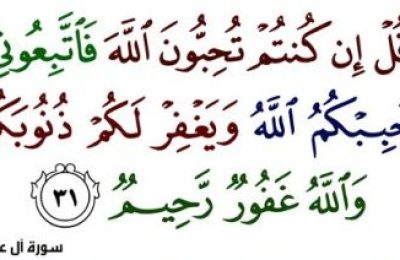 قُلْ إِن كُنتُمْ تُحِبُّونَ ٱللَّهَ فَٱتَّبِعُونِي
حْبِبْكُمُ ٱللَّهُ وَيَغْفِرْ لَكُمْ ذُنُوبَكُ
وَٱللَّهُ غَفُورٌ رَّحِيمٌ ٣١
سورة آل ع